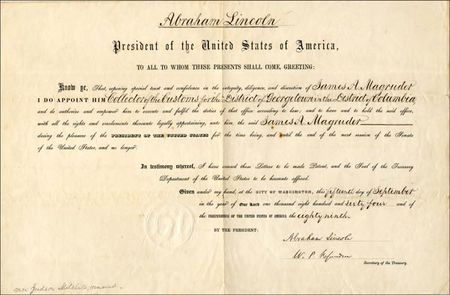 Abraham Lincoln
President of the United States of America,
TO ALL TO WHOM THESE PRESENTS SHALL COME, GREETING:
Know ye, That, reposing special trust and confidence in the integrity, diligence, and discretion of James A. Magruder
I DO APPOINT HIM Collector of the Customs for the District of Georgetown in the District of Columbia
and do authorize and empower him to execute and fulfil the duties of that office according to law; and to have and to hold the said office,
with all the rights and emoluments thereunto legally appertaining, unto him, the said James A. Magruder
during the pleasure of the PRESIDENT OF THE UNITED STATES for the time being, and until the end of the next session of the Senate
of the United States, and no longer.
In testimony whereof, I have caused these Letters to be made Patent, and the Seal of the Treasury
Department of the United States to be hereunto affixed.
Given under my hand, at the CITY OF WASHINGTON, this fifteenth day of September
in the year of Our Lord one thousand eight hundred and sixty four and of
the INDEPENDENCE OF THE UNITED STATES OF AMERICA the eighty ninth.
BY THE PRESIDENT:
Abraham Lincoln
W. P. Fessenden
Secretary of the Treasury.
vice Judson Mitchell,